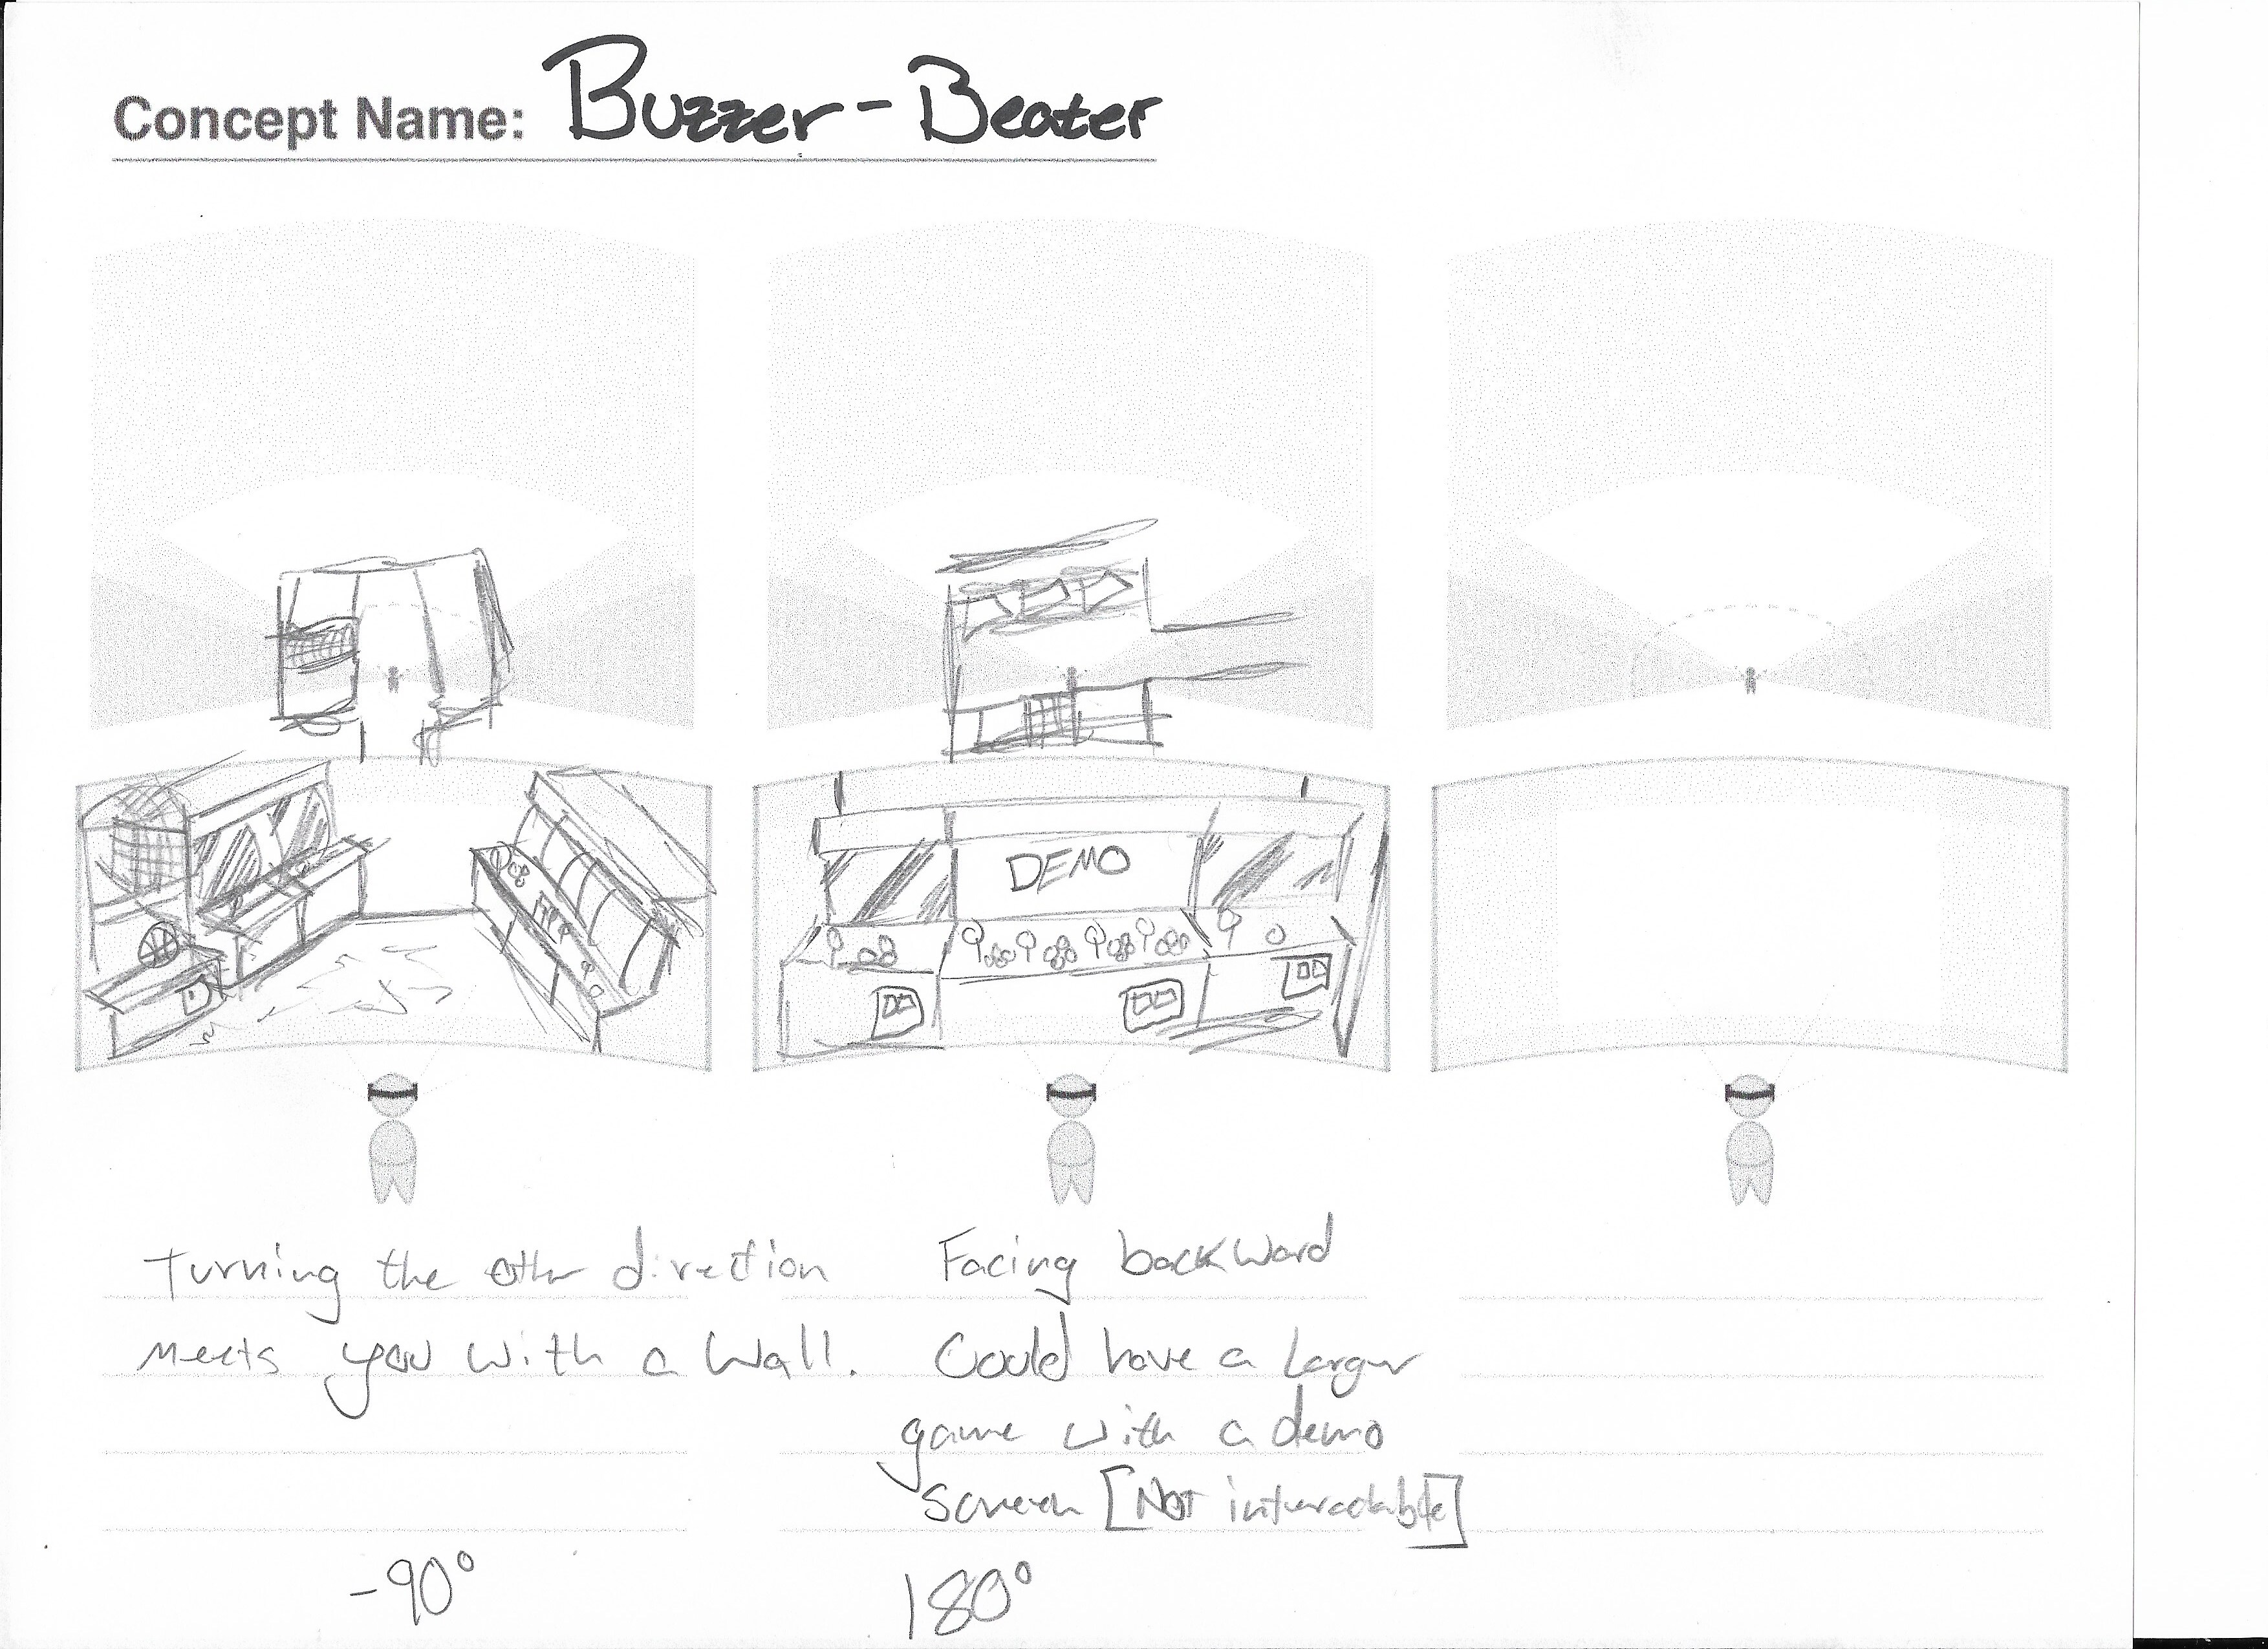 Concept Name: Buzzer-Beater
DEMO
Turning the other direction
meets you with a wall.
-90°
Facing backward
Could have a larger
game with a demo
screen [Not interactable]
180°